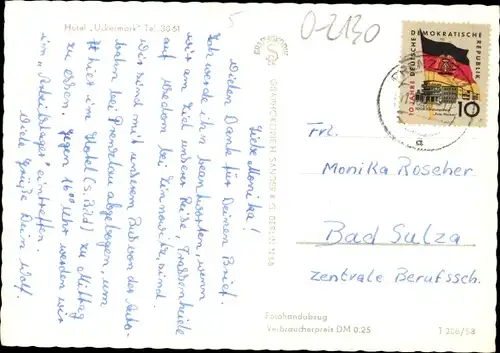 Hotel „Uckermark" Tel. 3061
O-2130
5
Liebe Monika!
Vielen Dank für Deinen Brief.
Ich werde ihn beantworten, wenn
wir am Ziel unserer Reise, Trassenheide
auf Usedom bei Zinnowitz, sind.
Wir sind mit unserem Bus von der Auto-
bahn bei Prenzlau abgebogen, um
hier im Hotel (s. Bild) zu Mittag
zu essen. Gegen 16⁰⁰ Uhr werden wir
im „Arbeitslager" eintreffen.
Viele Grüße Dein Wolf.
GRAPHOKOPIEN SANDER K.G. BERLIN
10 JAHRE DEUTSCHE DEMOKRATISCHE REPUBLIK
10
a
Frl.
Monika Roscher
Bad Sulza
Zentrale Berufssch.
Fotohandabzug
Verbraucherpreis DM 0.25
T 266/58